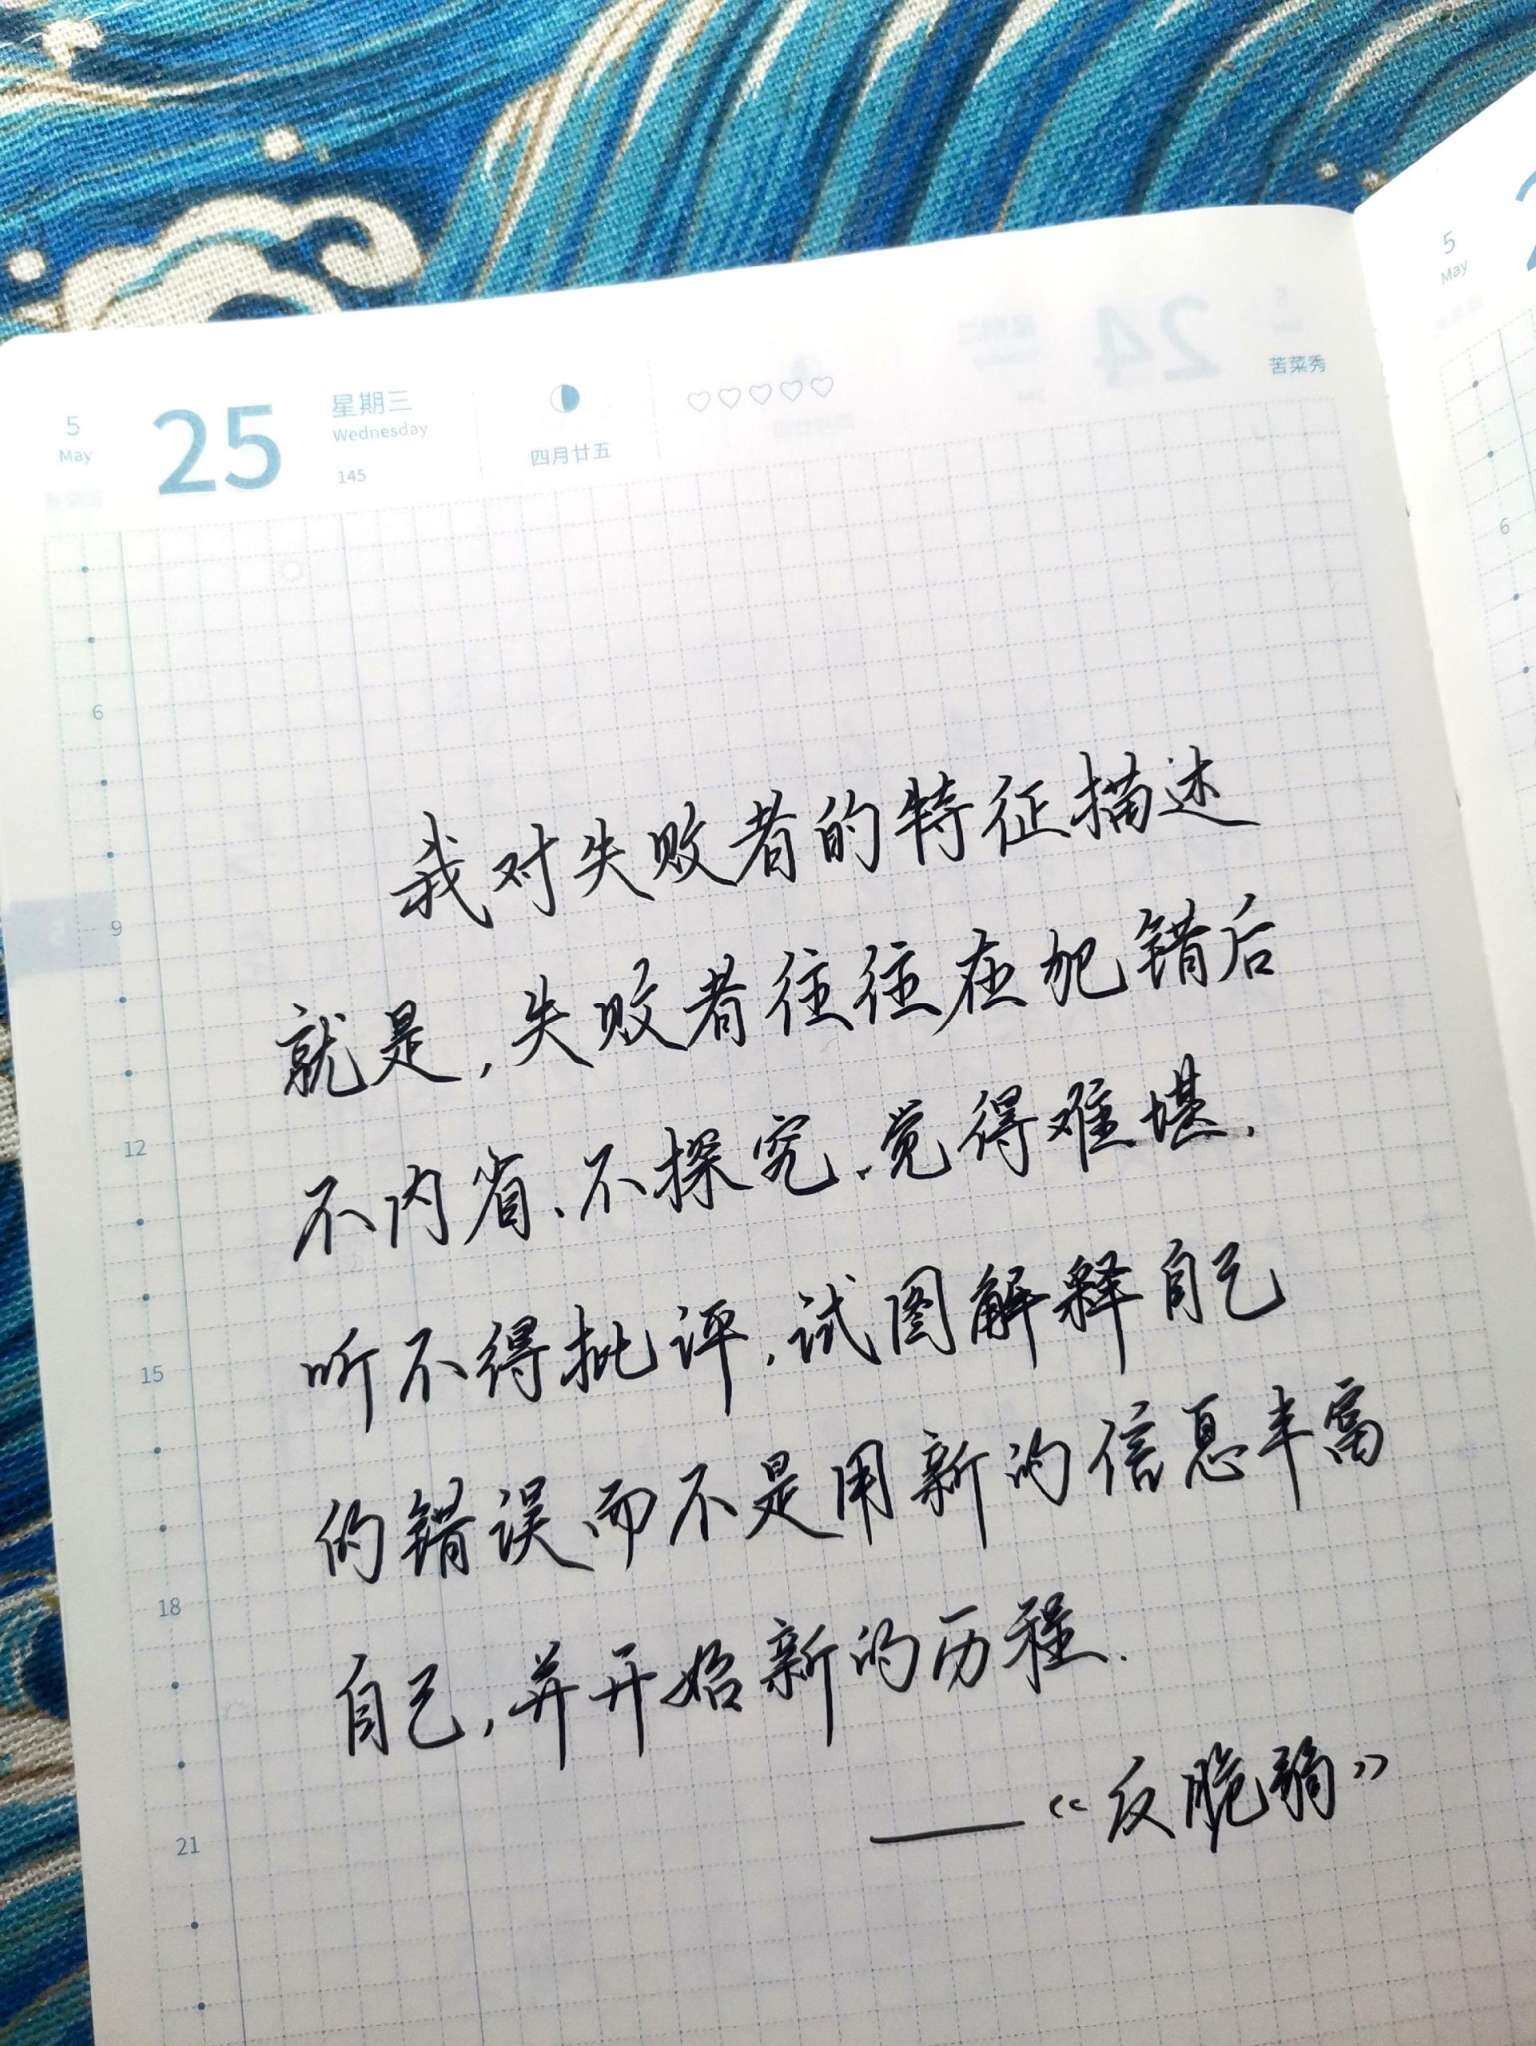 5
May
25
星期三
Wednesday
145
四月廿五
24
苦菜秀
5
May
6
9
12
15
18
21
6
我对失败者的特征描述
就是,失败者往往在犯错后
不内省、不探究,觉得难堪.
听不得批评,试图解释自己
的错误而不是用新的信息丰富
自己,并开始新的历程.
——“反脆弱”